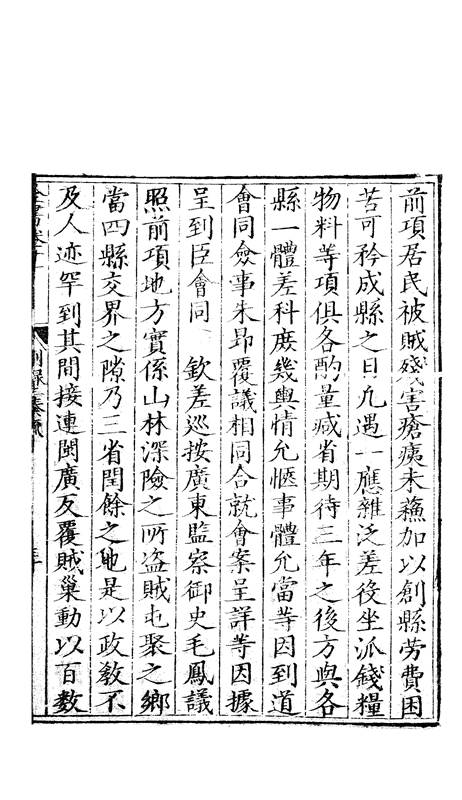 前項居民被賊殘害瘡痍未蘓加以創縣勞費困
苦可矜成縣之日凡遇一應雜泛差役坐派錢糧
物料等項俱各酌量减省期待三年之後方與各
縣一體差科庶幾輿情允愜事體允當等因到道
會同僉事朱昂覆議相同合就會案呈詳等因據
呈到臣會同　欽差巡按廣東監察御史毛鳳議
照前項地方實係山林深險之所盜賊屯聚之鄉
當四縣交界之隙乃三省閏餘之地是以政敎不
及人迹罕到其間接連閩廣反覆賊巢動以百數